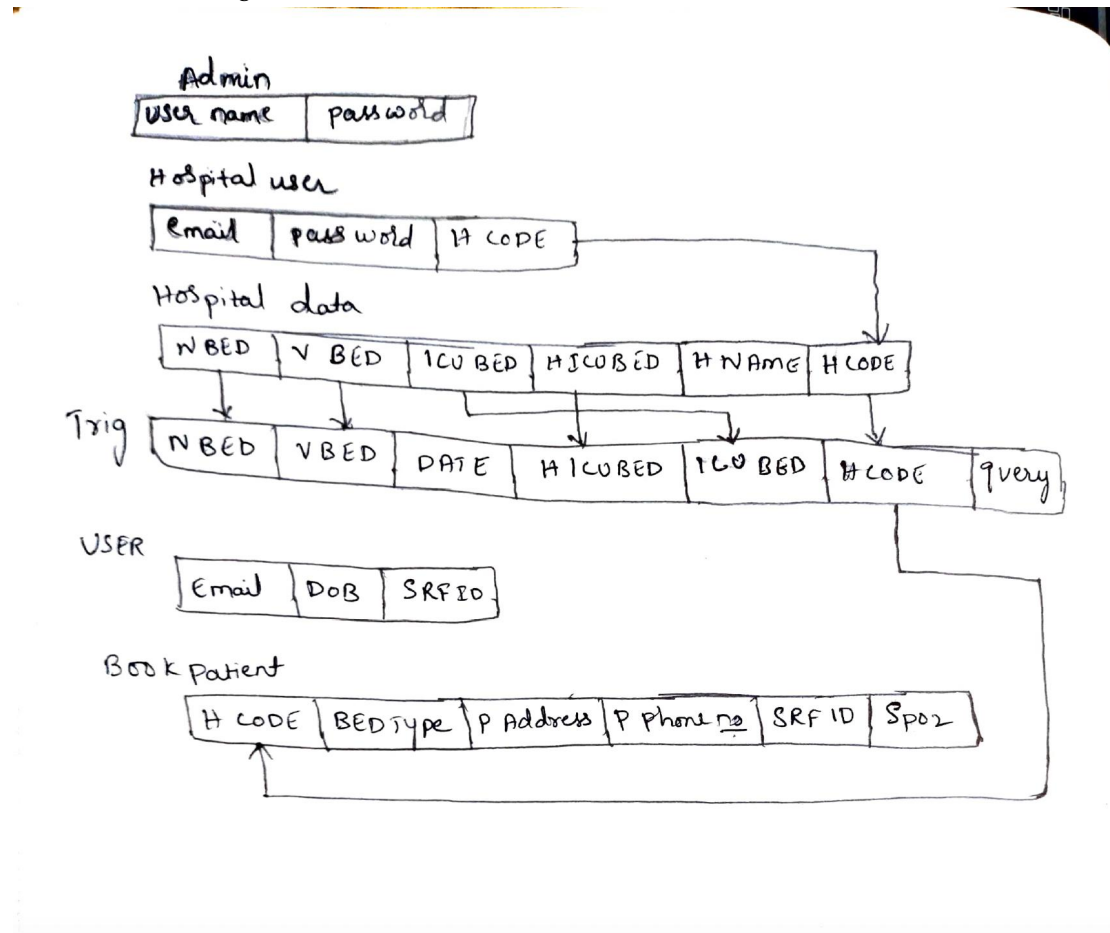 Admin
User name password
Hospital user
email password H CODE
Hospital data
N BED V BED ICU BED HICUBED H NAME H CODE
Trig N BED V BED DATE HICUBED ICU BED HCODE query
USER
Email DOB SRF ID
Book patient
H CODE BED Type P Address P phone no SRF ID Spo2